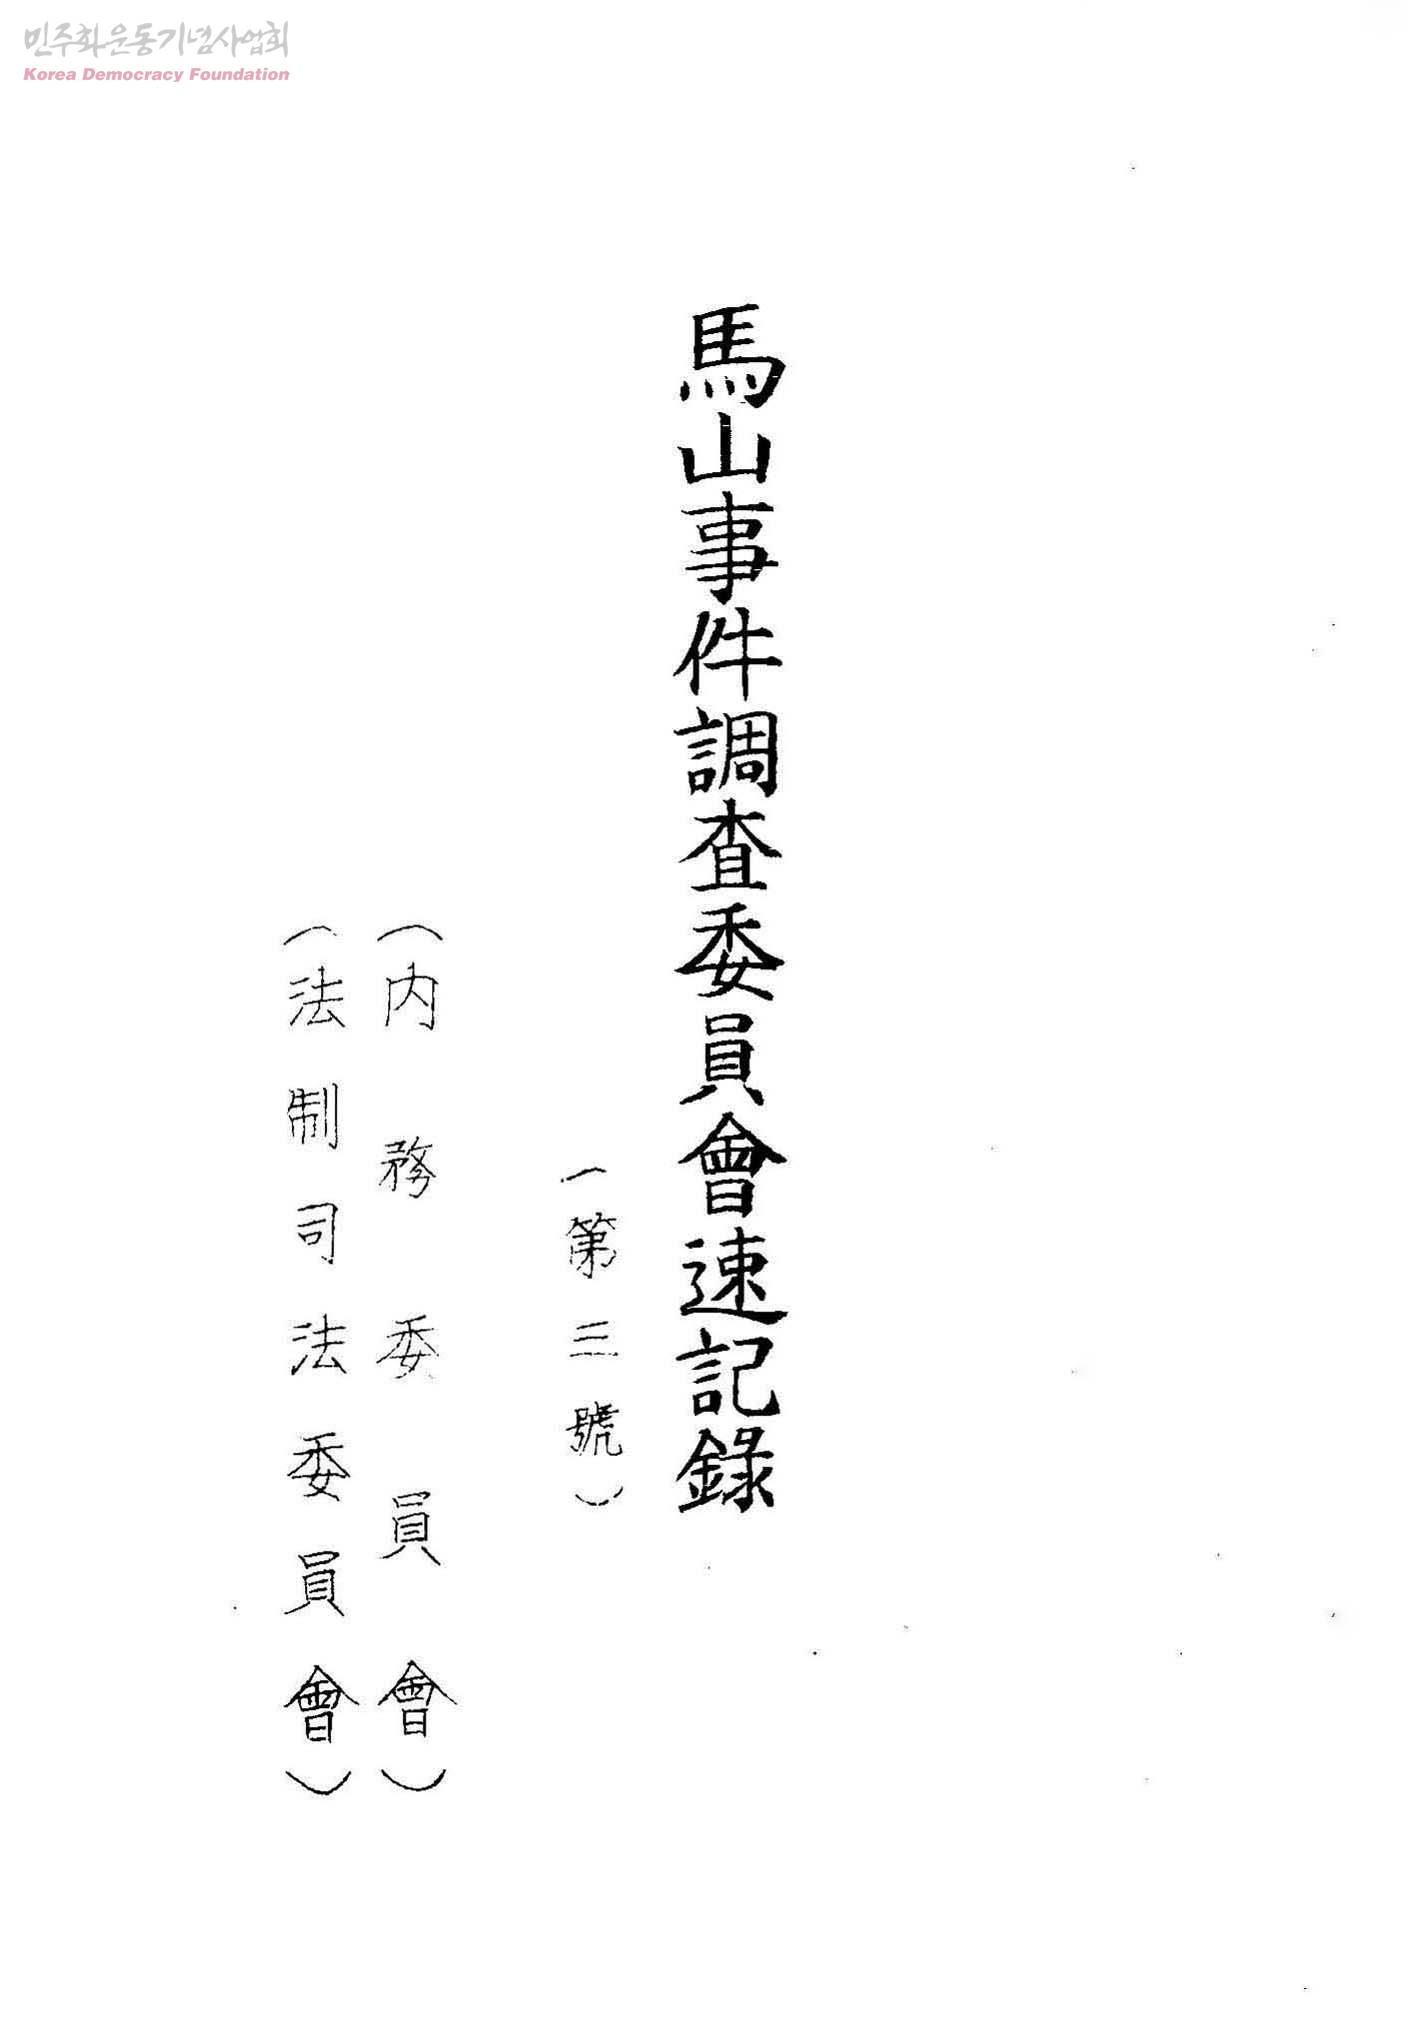 민주화운동기념사업회
Korea Democracy Foundation
馬山事件調査委員會速記錄
(第三號)
(内務委員會)
(法制司法委員會)